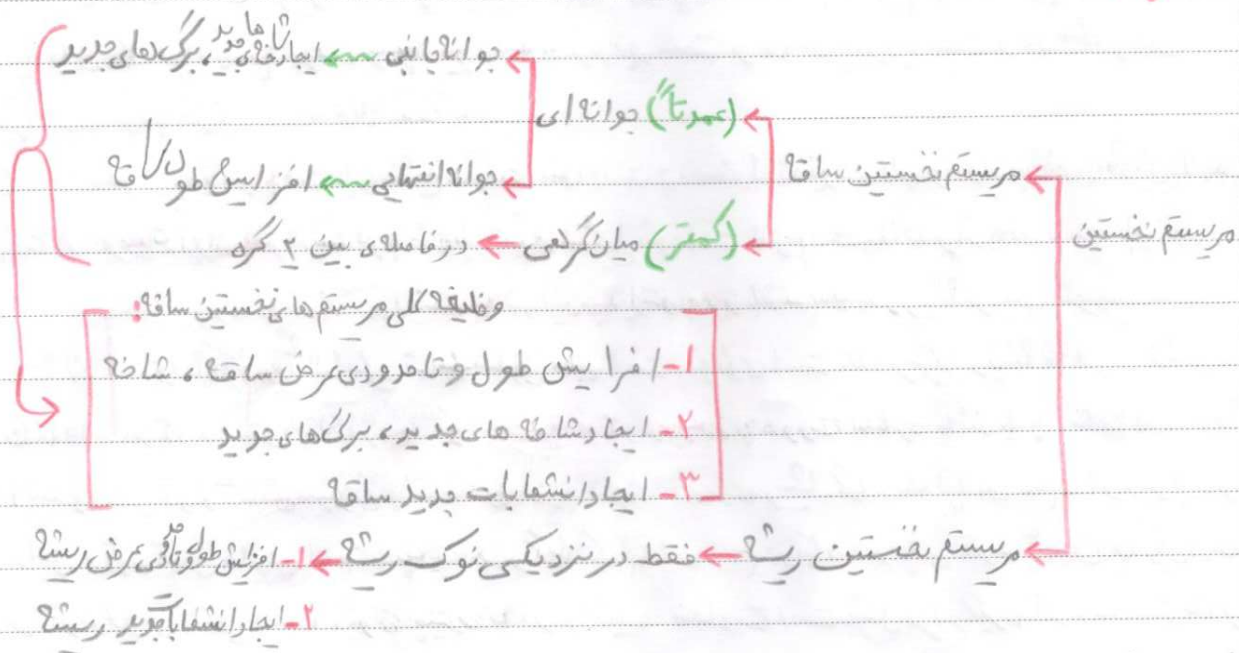 جوانه جانبی ← ایجاد شاخه‌های جدید، برگ‌های جدید
(عمدتاً) جوانه‌ای
جوانه انتهایی ← افزایش طول ساقه
مریستم نخستین ساقه
(کمتر) میان‌گرهی ← در فاصله‌ی بین ۲ گره
مریستم نخستین
وظیفه کلی مریستم‌های نخستین ساقه:
۱- افزایش طول و تا حدودی عرض ساقه، شاخه
۲- ایجاد شاخه‌های جدید، برگ‌های جدید
۳- ایجاد انشعابات جدید ساقه
مریستم نخستین ریشه ← فقط در نزدیکی نوک ریشه ← ۱- افزایش طول و تا حدودی عرض ریشه
۲- ایجاد انشعابات جدید ریشه